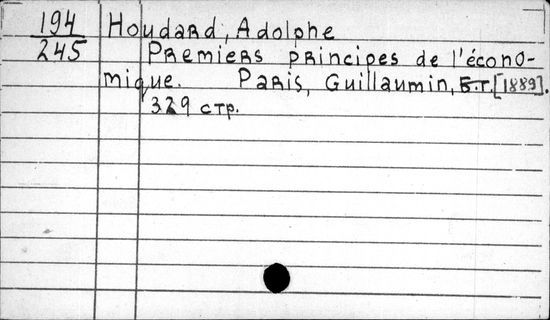 194 Houdard, Adolphe
245 Premiers principes de l'écono-
mique. Paris, Guillaumin, Б.г. [1889].
329 стр.